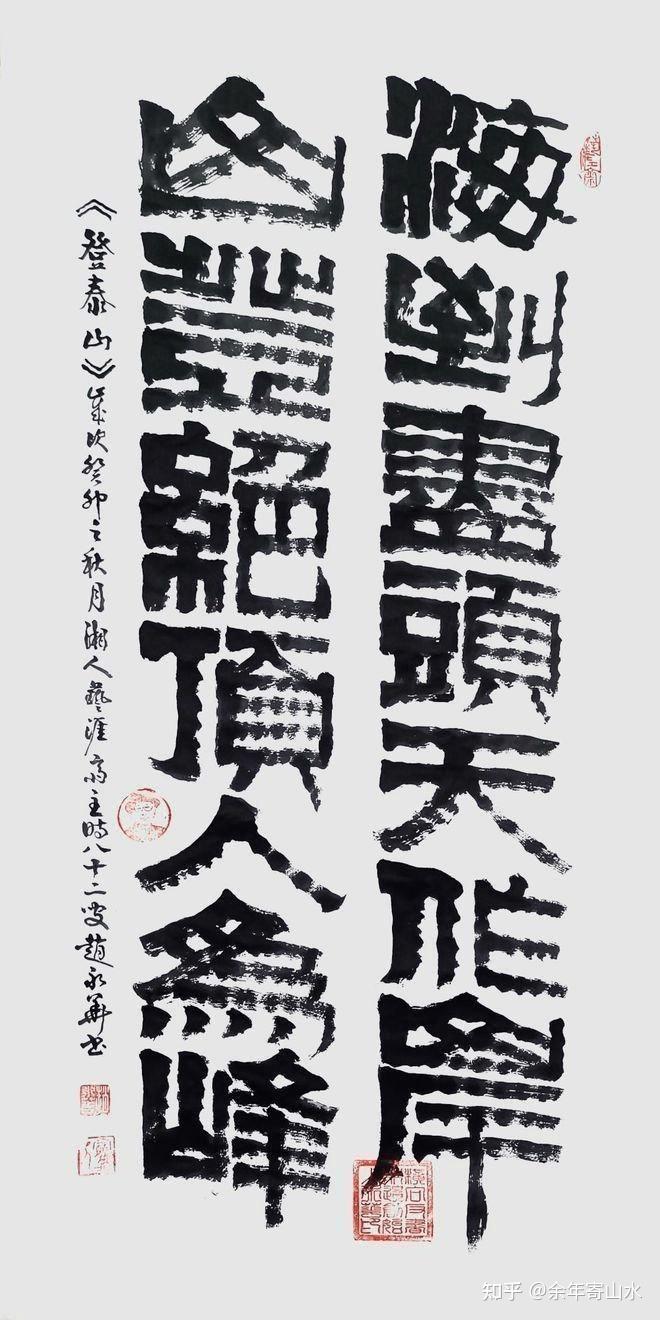 海到盡頭天作岸
山登絕頂人為峰
《登泰山》歲次癸卯之秋月湘人藝涯齋主時八十二叟趙永華書
知乎 @余年寄山水